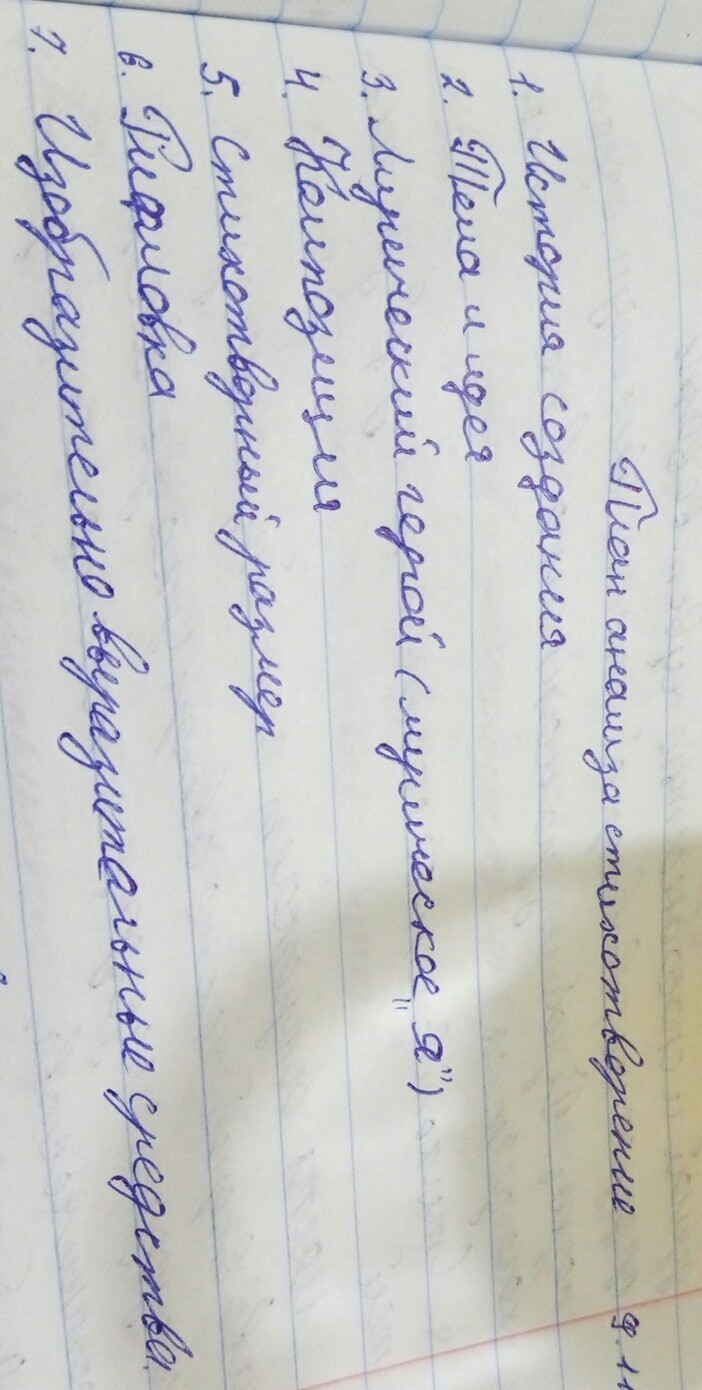 План анализа стихотворение 9.11
1. История создания
2. Тема и идея
3. Лирический герой (лирическое „Я")
4. Композиция
5. Стихотворный размер
6. Рифмовка
7. Изобразительно выразительные средства.